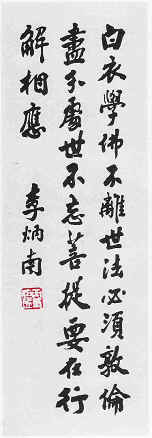 白衣學佛不離世法必須敦倫
盡分處世不忘菩提要在行
解相應　李炳南